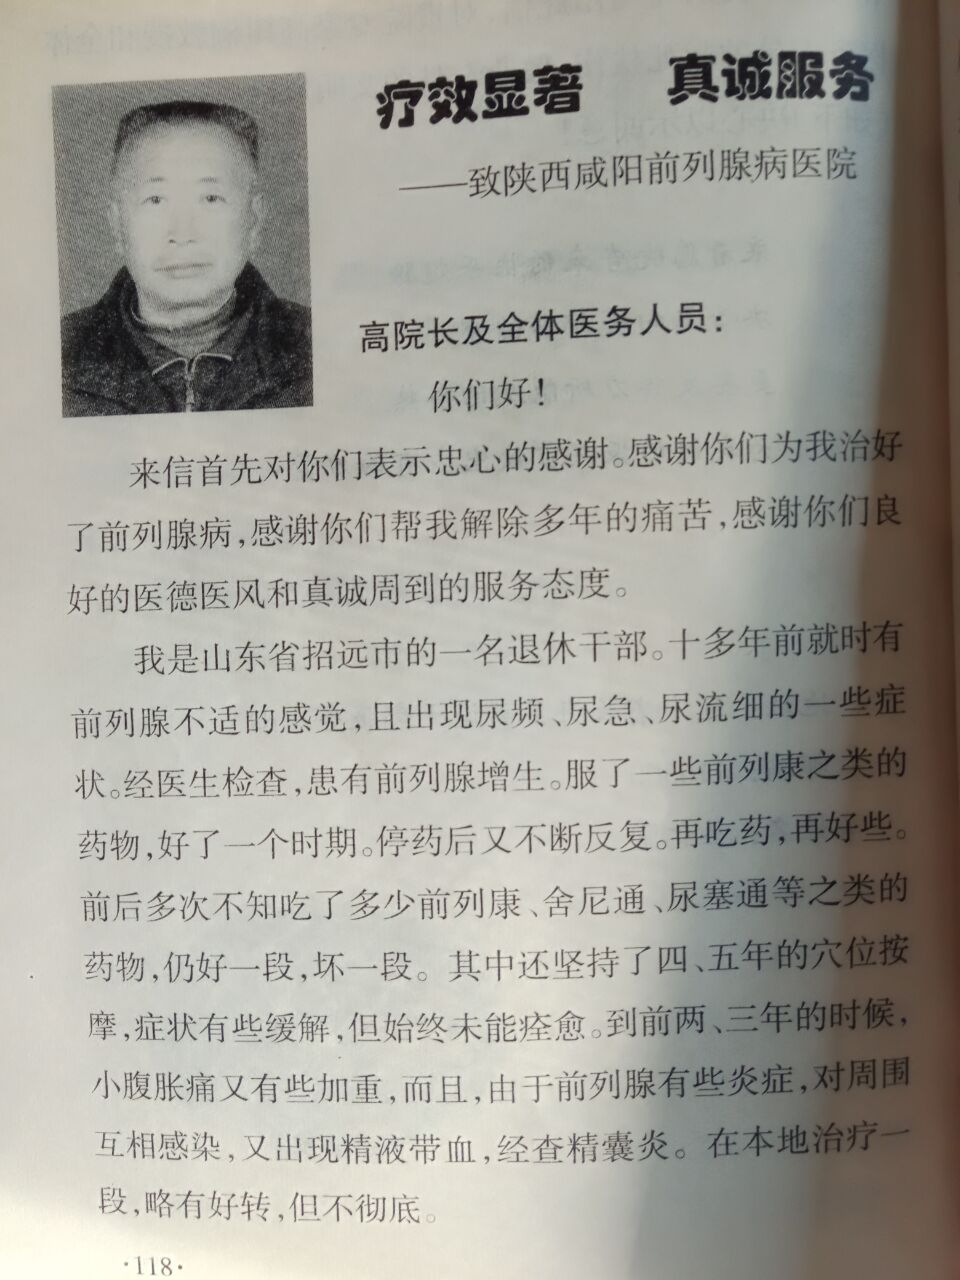 疗效显著 真诚服务
——致陕西咸阳前列腺病医院
高院长及全体医务人员：
你们好！
来信首先对你们表示忠心的感谢。感谢你们为我治好
了前列腺病，感谢你们帮我解除多年的痛苦，感谢你们良
好的医德医风和真诚周到的服务态度。
我是山东省招远市的一名退休干部。十多年前就时有
前列腺不适的感觉，且出现尿频、尿急、尿流细的一些症
状。经医生检查，患有前列腺增生。服了一些前列康之类的
药物，好了一个时期。停药后又不断反复。再吃药，再好些。
前后多次不知吃了多少前列康、舍尼通、尿塞通等之类的
药物，仍好一段，坏一段。其中还坚持了四、五年的穴位按
摩，症状有些缓解，但始终未能痊愈。到前两、三年的时候，
小腹胀痛又有些加重，而且，由于前列腺有些炎症，对周围
互相感染，又出现精液带血，经查精囊炎。在本地治疗一
段，略有好转，但不彻底。
·118·